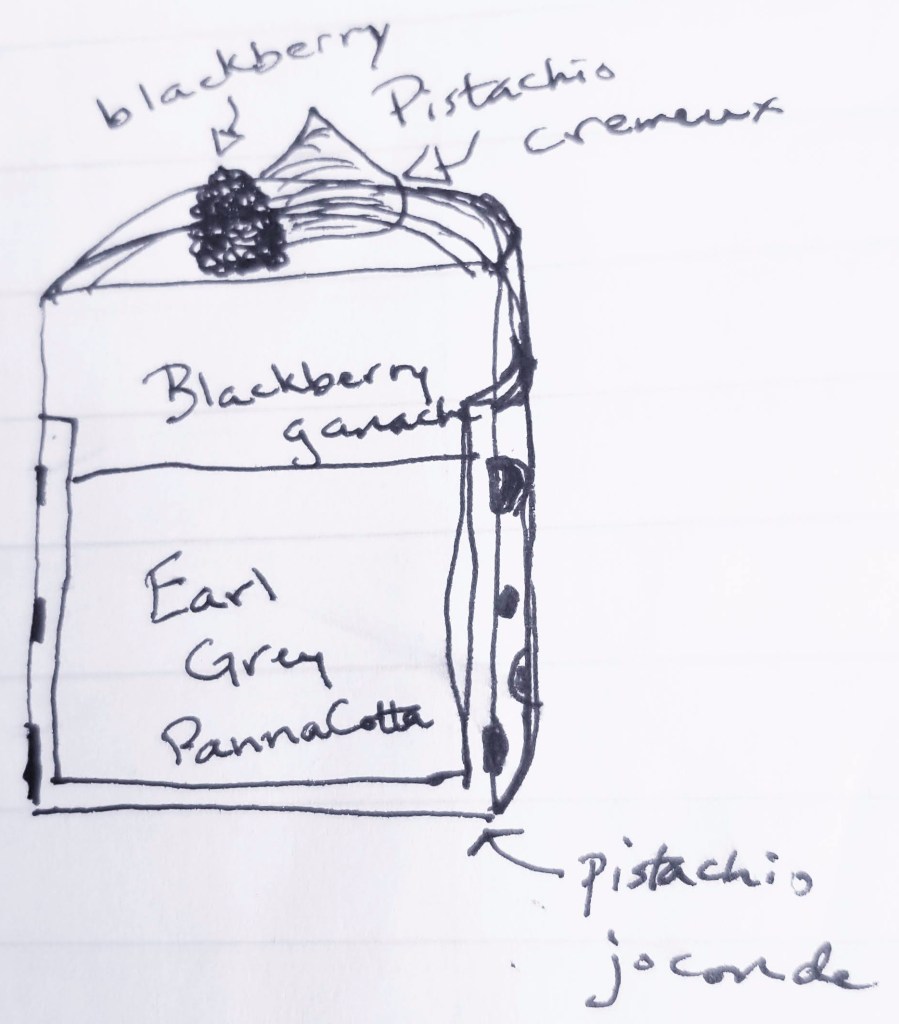 blackberry
Pistachio
cremeux
Blackberry
ganache
Earl
Grey
PannaCotta
pistachio
joconde